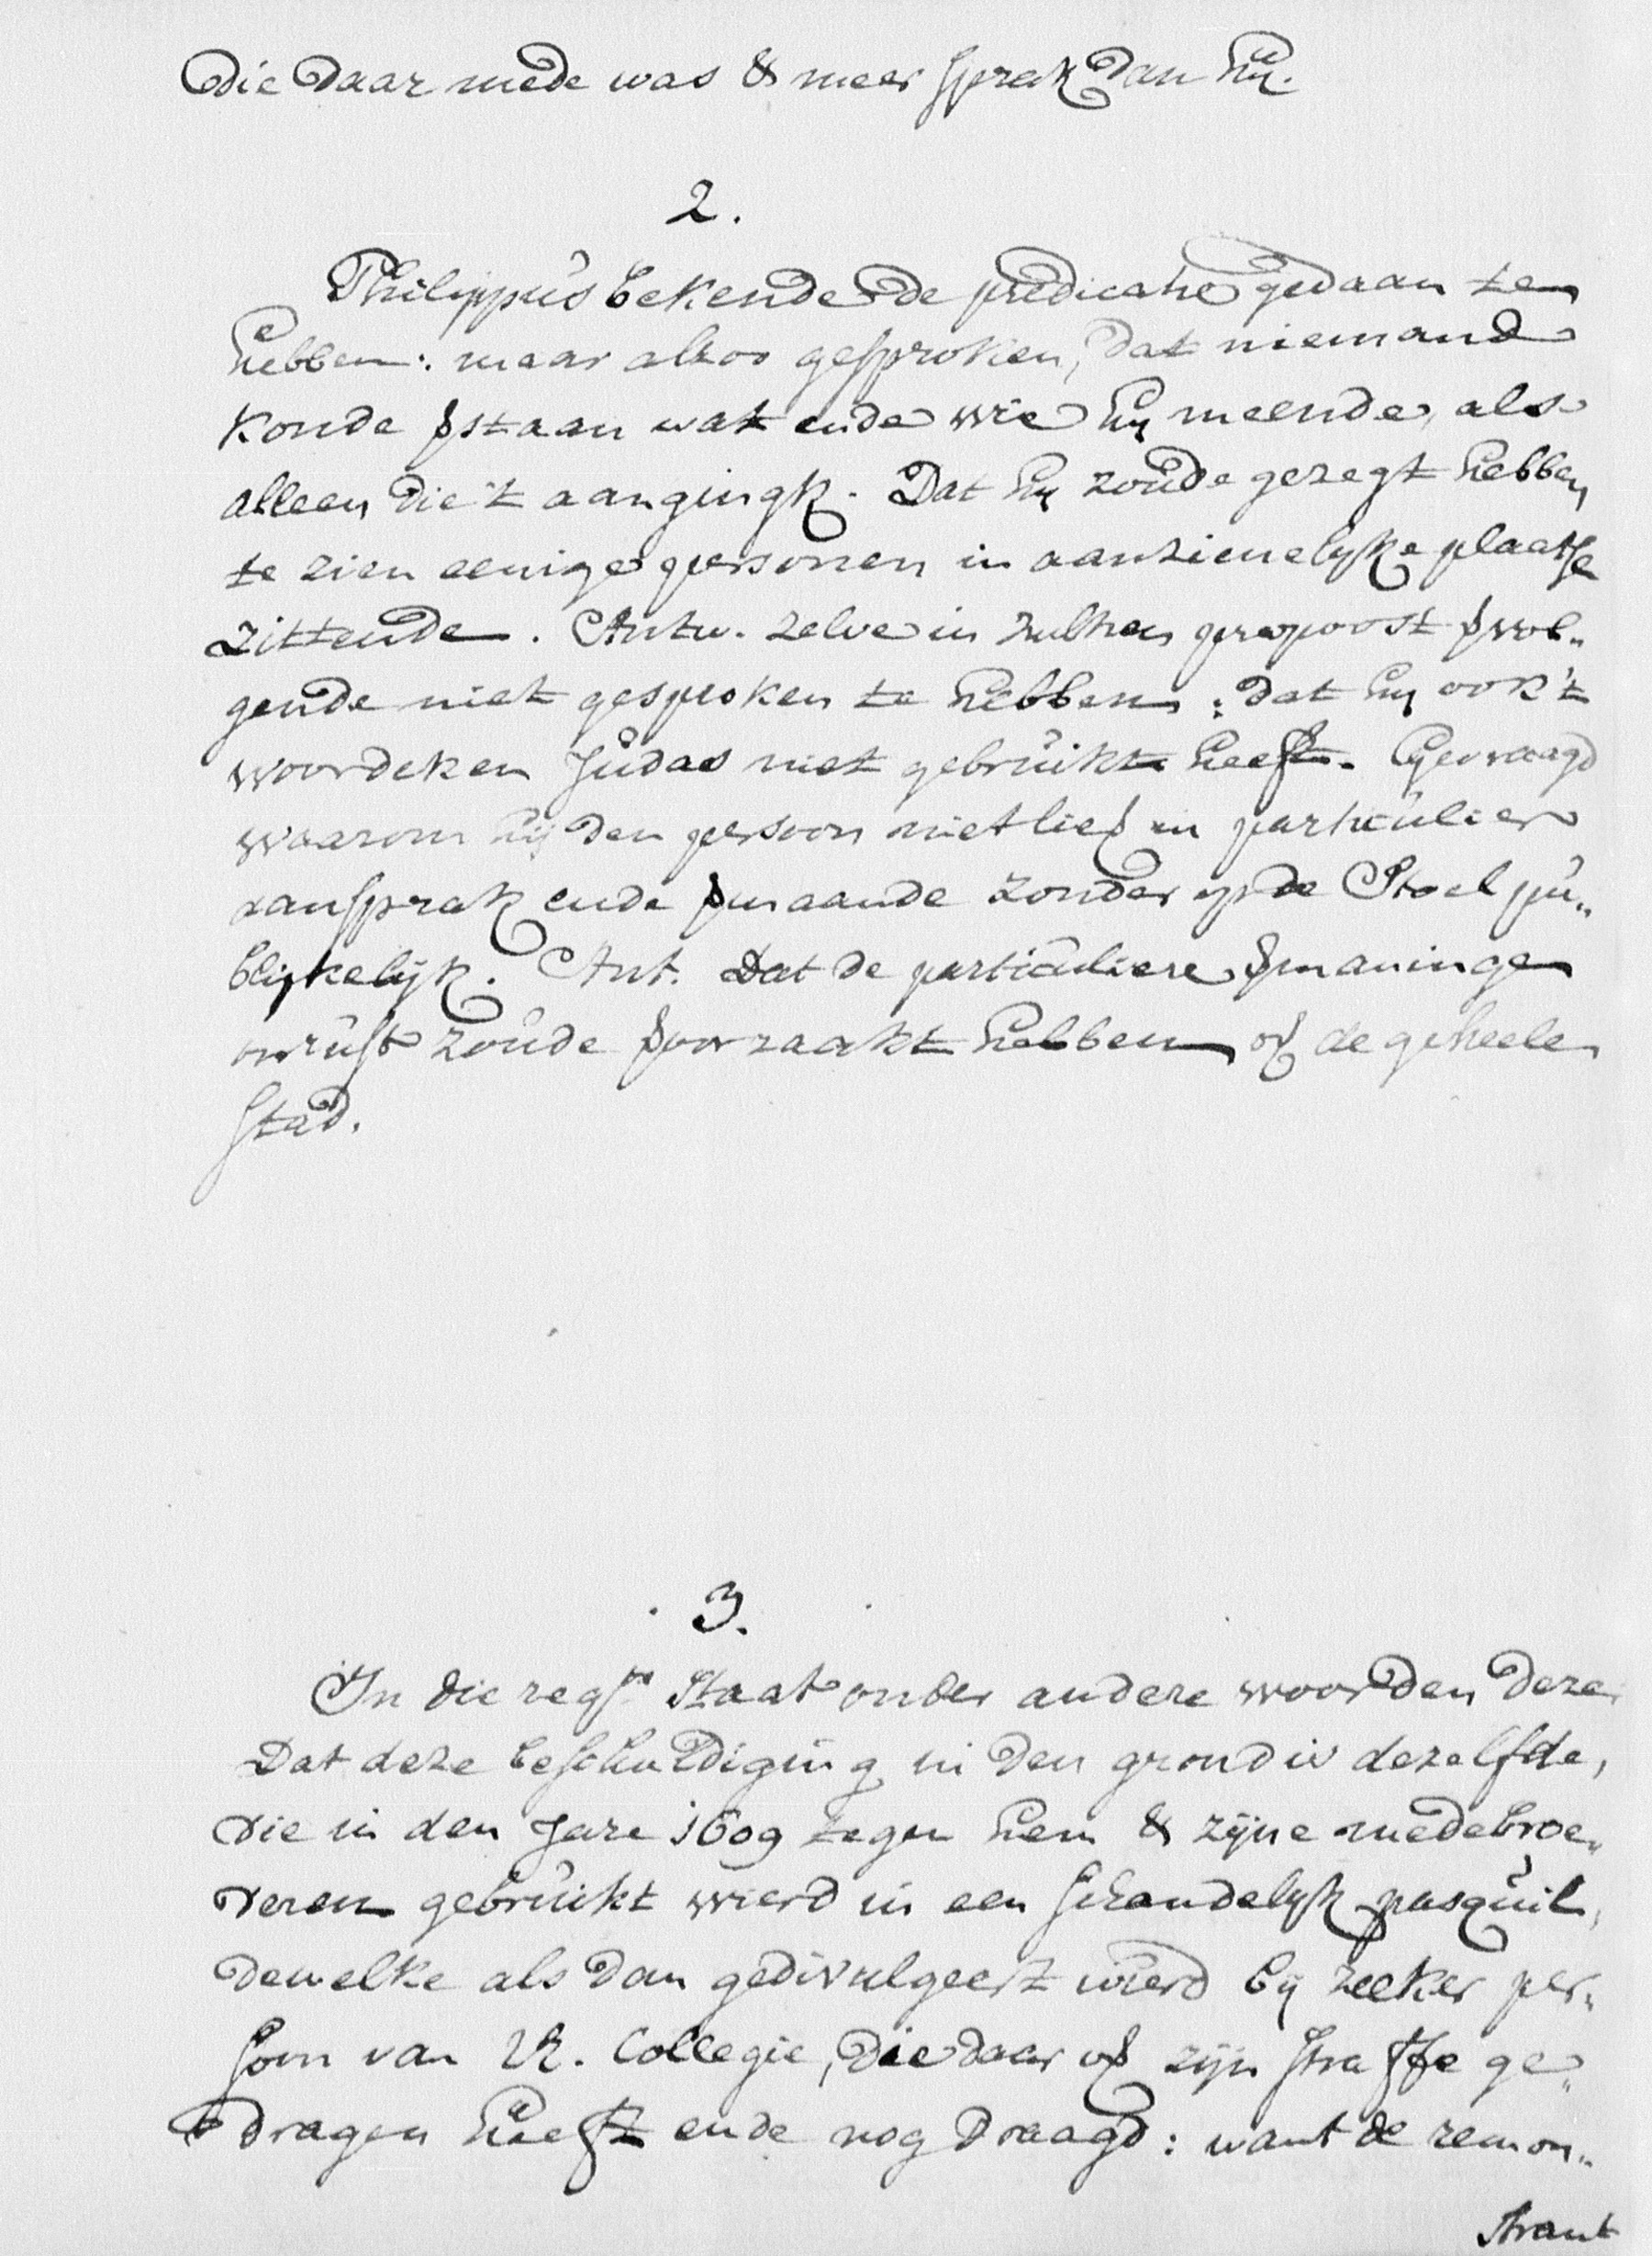 die daar mede was & meer sprak dan hij.
2.
Philippus bekende de predicatie gedaan te
hebben: maar alzoo gesproken, dat niemand
konde verstaan wat ende wie hij meende, als
alleen die 't aangingk. Dat hij zoude gezegt hebben
te zien eenige personen in aanzienelyke plaatse
zittende. Antw. zelve in zulken propoost vervol„
gende niet gesproken te hebben: dat hij ook 't
woordeken Judas niet gebruikt heeft. Gevraagd
waarom hij den persoon niet liev in particulier
aansprak ende vermaande zonder op de Stoel pu„
blijkelijk. Ant. Dat de particuliere vermaninge
onrust zoude veroorzaakt hebben over de geheele
stad.
3.
In die regr. staat onder andere woorden deze
Dat deze beschuldiging in den grond is dezelfde,
die in den Jare 1609 tegen hem & zijne medebroe„
deren gebruikt wierd in een schandelyk pasquil,
dewelke als dan gedivulgeert wierd bij zeeker per„
soon van UE. Collegie, die daar over zijn straffe ge„
dragen heeft ende nog draagd: want de remon„
strant